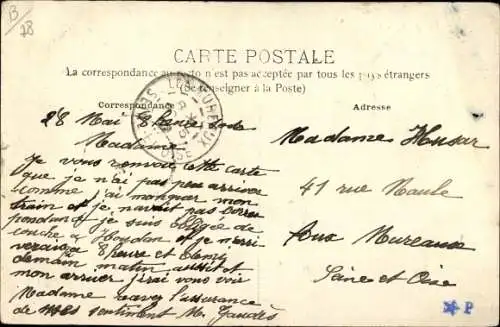 B
28
CARTE POSTALE
La correspondance au recto n'est pas acceptée par tous les pays étrangers
(Se renseigner à la Poste)
Correspondance
Adresse
28 Mai 8 heures
Madame
Je vous renvoie cette carte
que je n'ai pas peu arriver
comme j'ai manquer mon
train et je
pas corres
pondant et je suis oblige de
couche a Houdan et je
8 heure et
demain matin aussitot
mon arriver j'irai vous voir
Madame
l'assurance
de mes sentiment Mr
Madame
41 rue Naule
Les Mureaux
Seine et Oise
P